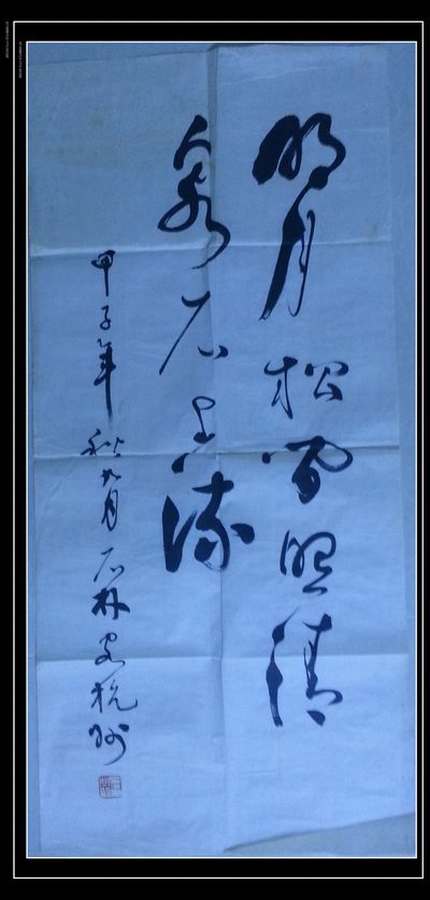 明月松间照清
泉石上流
甲子年秋九月石林客杭州